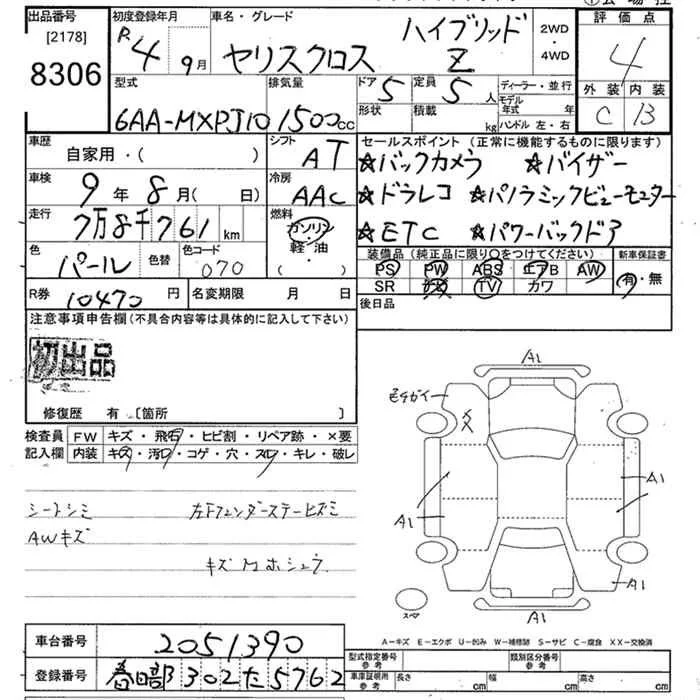 出品番号
[2178]
8306
初度登録年月
R.4 9月
車名・グレード
ハイブリッド
ヤリスクロス Z
2WD
・
4WD
評価点
4
外装 内装
C B
型式
6AA-MXPJ10
排気量
1500cc
ドア 5
定員 5人
形状
積載 kg
ディーラー・並行
モデル年式 年
ハンドル 左・右
車歴
自家用・( )
シフト
AT
車検
9年8月( 日)
冷房
AAC
走行
7万8千761km
燃料
ガソリン
・
軽・油
( ・ )
色
パール
色替
色コード
070
R券 10470円
名変期限 月 日
セールスポイント(正常に機能するものに限ります)
☆バックカメラ ☆バイザー
☆ドラレコ ☆パノラミックビューモニター
☆ETC ☆パワーバックドア
装備品(純正品に限り○をつけてください)
新車保証書
PS PW ABS エアB AW
有・無
SR ナビ TV カワ
後日品
注意事項申告欄(不具合内容等は具体的に記入して下さい)
初出品
修復歴 有〔箇所 〕
検査員
記入欄
FW キズ・飛石・ヒビ割・リペア跡・×要
内装 キズ・汚レ・コゲ・穴・スレ・キレ・破レ
シートシミ
AWキズ
A1
A1
A1
A1
A1
スペア
A-キズ E-エクボ U-凹み W-補修跡 S-サビ C-腐食 XX-交換済
車台番号
2051390
登録番号
春日部 302 た 5762
型式指定番号
参考
類別区分番号
参考
車庫証明用
参考
長さ cm
幅 cm
高さ cm